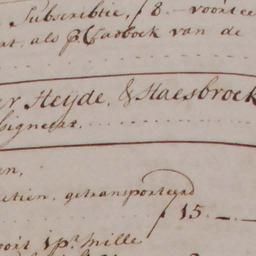 Subscriptie, f 8.— voor tee
als p. Casboek van de
er Heyde, & Haesbroek
signeert.
en,
ctien, getransporteerd
f 15.—.—
ooit 1 p.r mille